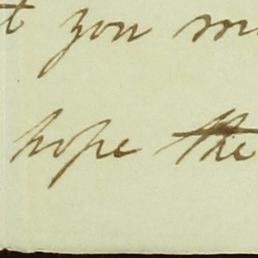 t you m
hope the